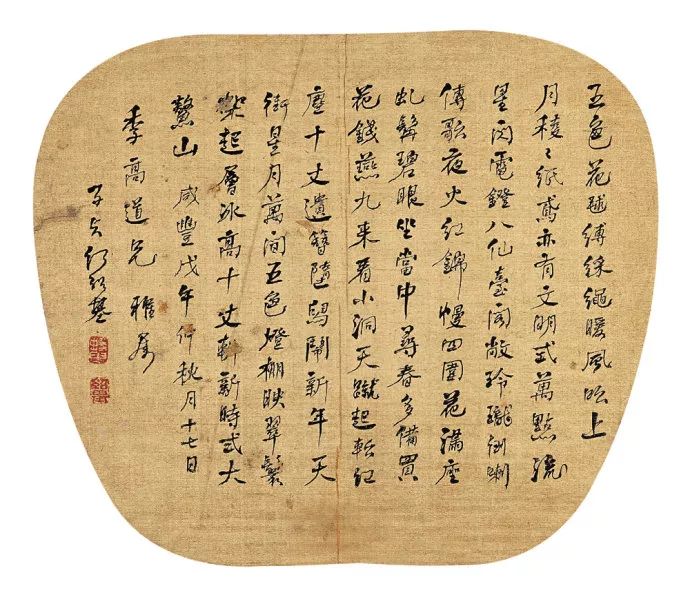 五色花毬縛綵繩暖風吹上
月稜々紙鳶亦有文明式萬點流
星閃電鐙八仙臺閣敞玲瓏倒喇
傳歌夜火紅錦幔四圍花滿座
虬髯碧眼坐當中尋春多備買
花錢燕九来看小洞天蹴起軟紅
塵十丈遺簪隨舄鬧新年天
街星月萬間五色燈棚映翠鬟
架起層冰高十丈斬新時式大
鰲山 咸豐戊午仲秋月十七日
季高道兄雅屬
子貞何紹基